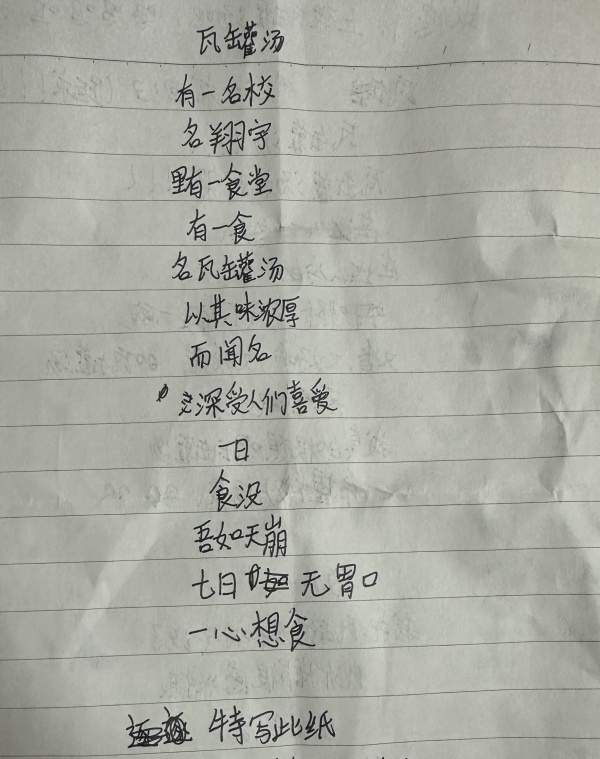 瓦罐汤
有一名校
名翔宇
里有一食堂
有一食
名瓦罐汤
以其味浓厚
而闻名
深受人们喜爱
一日
食没
吾如天崩
七日 无胃口
一心想食
特写此纸